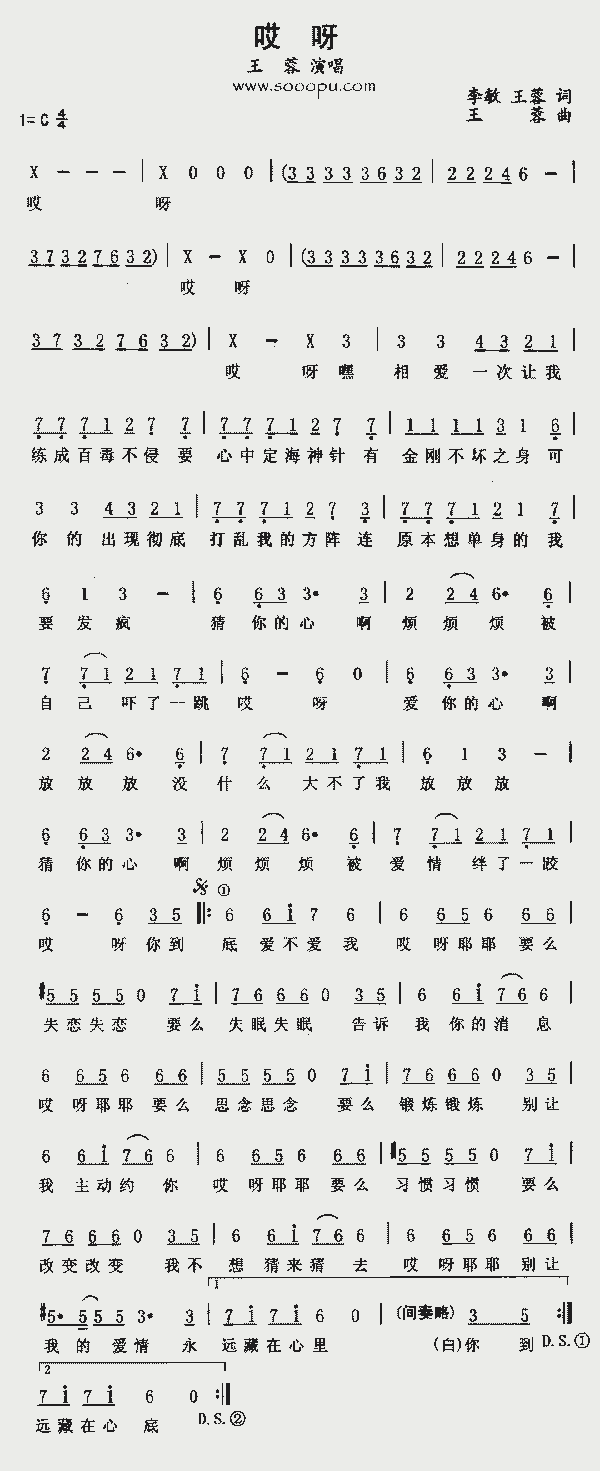 哎 呀
王 蓉 演唱
www.sooopu.com
李敏 王蓉 词
1= C 4/4 王 蓉 曲
X - - - | X 0 0 0 | (3 3 3 3 3 6 3 2 | 2 2 2 4 6 - |
哎 呀
3 7 3 2 7 6 3 2) | X - X 0 | (3 3 3 3 3 6 3 2 | 2 2 2 4 6 - |
哎 呀
3 7 3 2 7 6 3 2) | X - X 3 | 3 3 4 3 2 1 |
哎 呀 嘿 相 爱 一 次 让 我
7 7 7 1 2 7 7 | 7 7 7 1 2 7 7 | 1 1 1 1 3 1 6 |
练 成 百 毒 不 侵 要 心 中 定 海 神 针 有 金 刚 不 坏 之 身 可
3 3 4 3 2 1 | 7 7 7 1 2 7 3 | 7 7 7 1 2 1 7 |
你 的 出 现 彻 底 打 乱 我 的 方 阵 连 原 本 想 单 身 的 我
6 1 3 - | 6 6 3 3· 3 | 2 2 4 6· 6 |
要 发 疯 猜 你 的 心 啊 烦 烦 烦 被
7 7 1 2 1 7 1 | 6 - 6 0 | 6 6 3 3· 3 |
自 己 吓 了 一 跳 哎 呀 爱 你 的 心 啊
2 2 4 6· 6 | 7 7 1 2 1 7 1 | 6 1 3 - |
放 放 放 没 什 么 大 不 了 我 放 放 放
6 6 3 3· 3 | 2 2 4 6· 6 | 7 7 1 2 1 7 1 |
猜 你 的 心 啊 烦 烦 烦 被 爱 情 绊 了 一 跤
①
6 - 6 3 5 ‖: 6 6 i 7 6 | 6 6 5 6 6 6 |
哎 呀 你 到 底 爱 不 爱 我 哎 呀 耶 耶 要 么
#5 5 5 5 0 7 i | 7 6 6 6 0 3 5 | 6 6 i 7 6 6 |
失 恋 失 恋 要 么 失 眠 失 眠 告 诉 我 你 的 消 息
6 6 5 6 6 6 | 5 5 5 5 0 7 i | 7 6 6 6 0 3 5 |
哎 呀 耶 耶 要 么 思 念 思 念 要 么 锻 炼 锻 炼 别 让
6 6 i 7 6 6 | 6 6 5 6 6 6 | #5 5 5 5 0 7 i |
我 主 动 约 你 哎 呀 耶 耶 要 么 习 惯 习 惯 要 么
7 6 6 6 0 3 5 | 6 6 i 7 6 6 | 6 6 5 6 6 6 |
改 变 改 变 我 不 想 猜 来 猜 去 哎 呀 耶 耶 别 让
1
#5· 5 5 5 3· 3 | 7 i 7 i 6 0 | (间奏略) 3 5 :‖
我 的 爱 情 永 远 藏 在 心 里 (白)你 到 D.S.①
2
7 i 7 i 6 0 :‖
远 藏 在 心 底 D.S.②